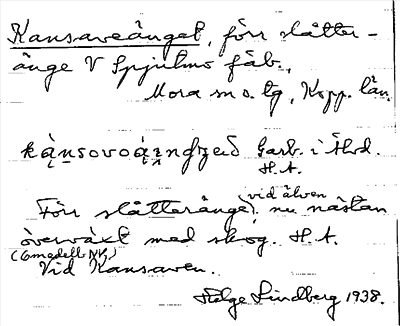 Kansaveänget, förr slåtter-
änge V Spjutmo fäb.,
Mora sn o. tg, Kopp. län.
Garb. i Älvd.
H. A.
Förr slåtteränge vid älven, nu nästan
överväxt med skog. H. A.
Vid Kansaven.
Helge Lindberg 1938.